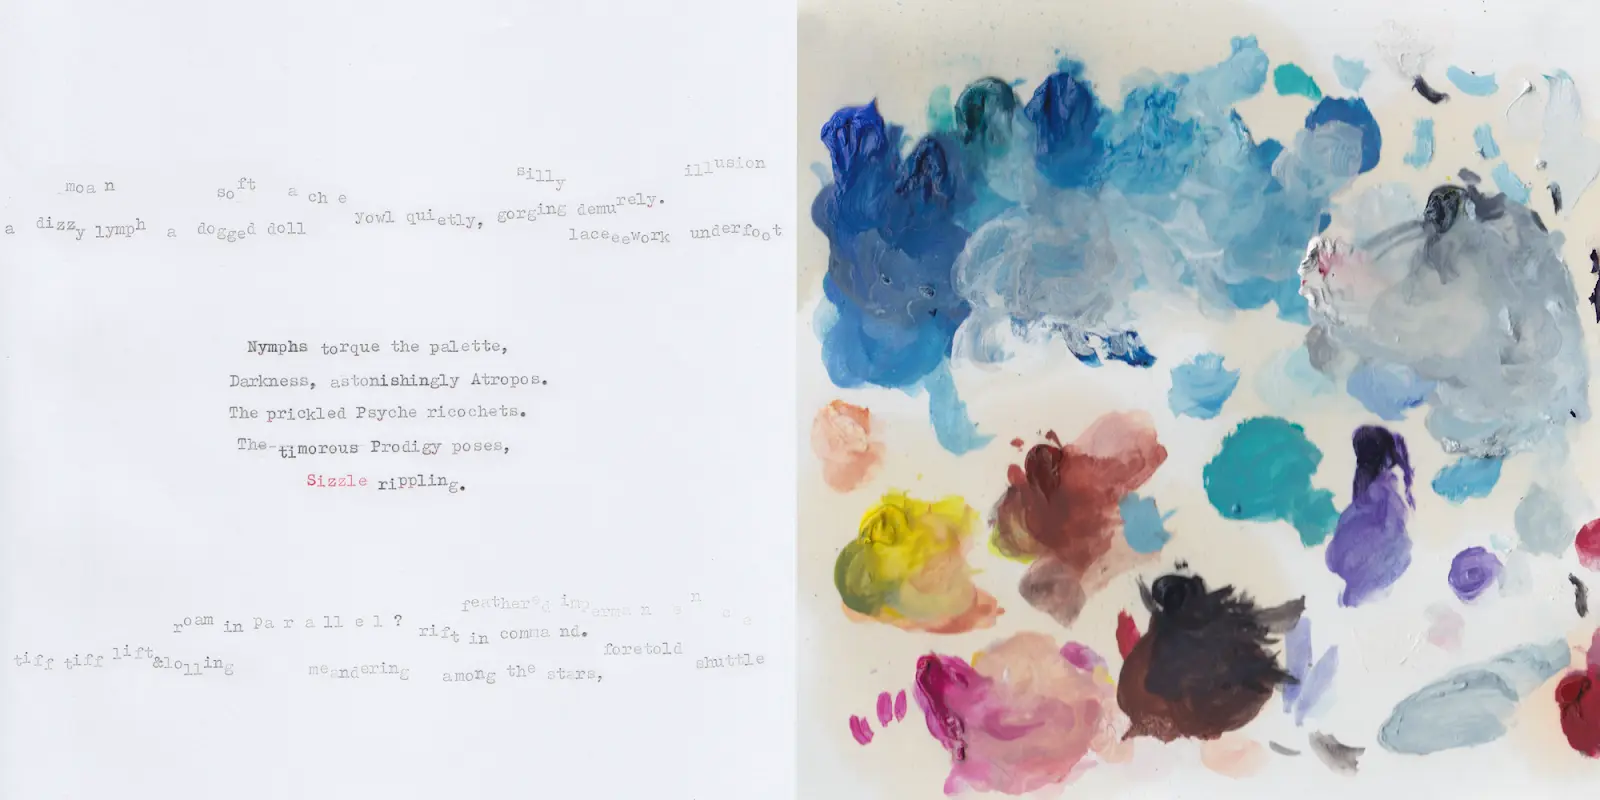 moan soft ache silly illusion
a dizzy lymph a dogged doll yowl quietly, gorging demurely.
laceeework underfoot
Nymphs torque the palette,
Darkness, astonishingly Atropos.
The prickled Psyche ricochets.
The-timorous Prodigy poses,
Sizzle rippling.
feathered imperman en ce
roam in pa r a ll e l ? rift in comma nd.
foretold
tiff tiff lift&lolling meandering among the stars, shuttle